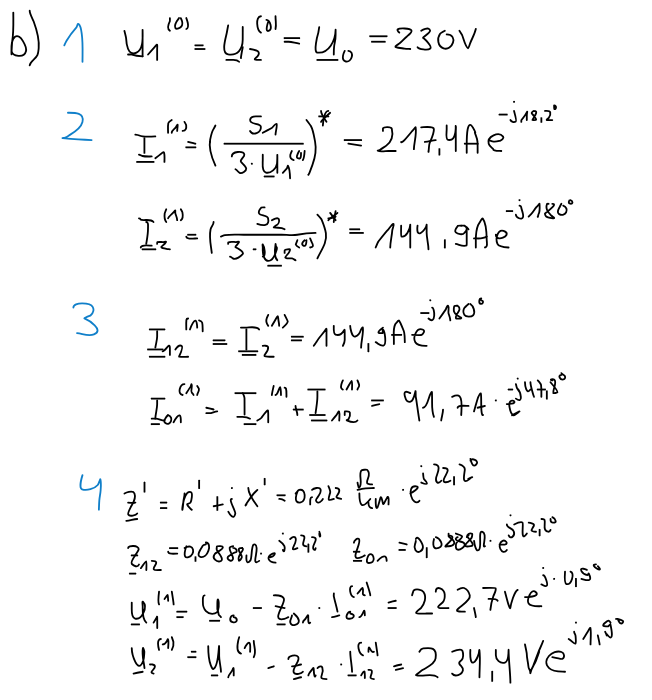 b) 1 U̲₁⁽⁰⁾ = U̲₂⁽⁰⁾ = U̲₀ = 230V
2 I̲₁⁽¹⁾ = (S1 / 3·U̲1⁽⁰⁾)* = 217,4A e^-j18,2°
I̲₂⁽¹⁾ = (S2 / 3·U̲2⁽⁰⁾)* = 144,9A e^-j180°
3 I̲₁₂⁽¹⁾ = I̲₂⁽¹⁾ = 144,9A e^-j180°
I̲₀₁⁽¹⁾ = I̲₁⁽¹⁾ + I̲₁₂⁽¹⁾ = 91,7A · e^-j47,8°
4 Z̲' = R' + jX' = 0,222 Ω/km · e^j22,2°
Z̲₁₂ = 0,0888Ω · e^j22,2° Z̲₀₁ = 0,0888Ω · e^j22,2°
U̲₁⁽¹⁾ = U̲₀ - Z̲₀₁ · I̲₀₁⁽¹⁾ = 222,7V e^j·0,9°
U̲₂⁽¹⁾ = U̲₁⁽¹⁾ - Z̲₁₂ · I̲₁₂⁽¹⁾ = 234,4V e^j1,9°